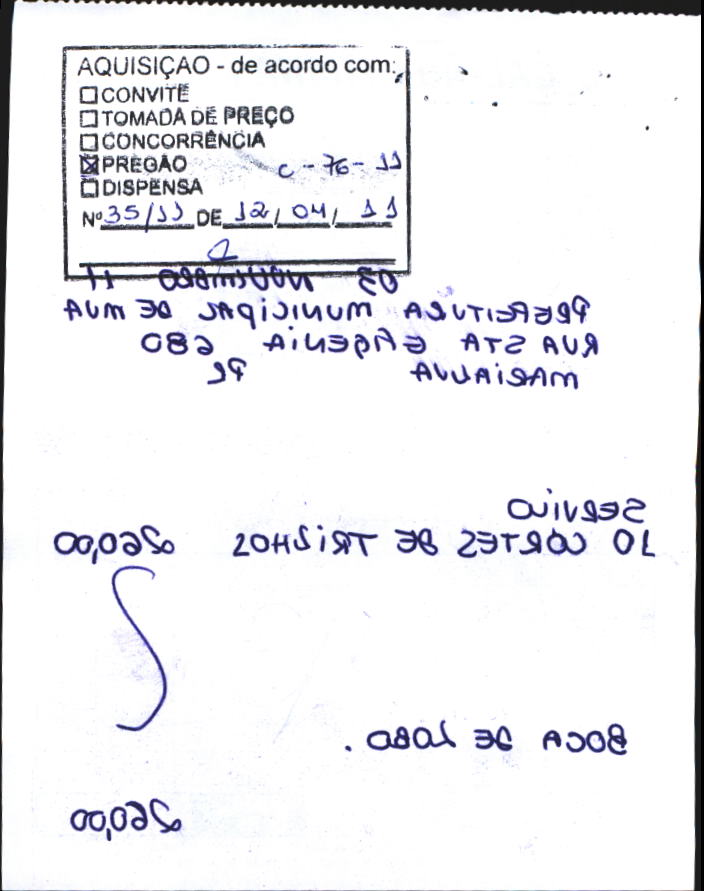 AQUISIÇÃO - de acordo com:
☐ CONVITE
☐ TOMADA DE PREÇO
☐ CONCORRÊNCIA
☒ PREGÃO C - 76 - 11
☐ DISPENSA
Nº 35/11 DE 12 / 04 / 11
03 NOVEMBRO 11
PREFEITURA MUNICIPAL DE MVA
RUA STA EFIGENIA 680
MARIALVA PR
SERVIÇO
10 CORTES DE TRILHOS 260,00
BOCA DE LOBO.
260,00